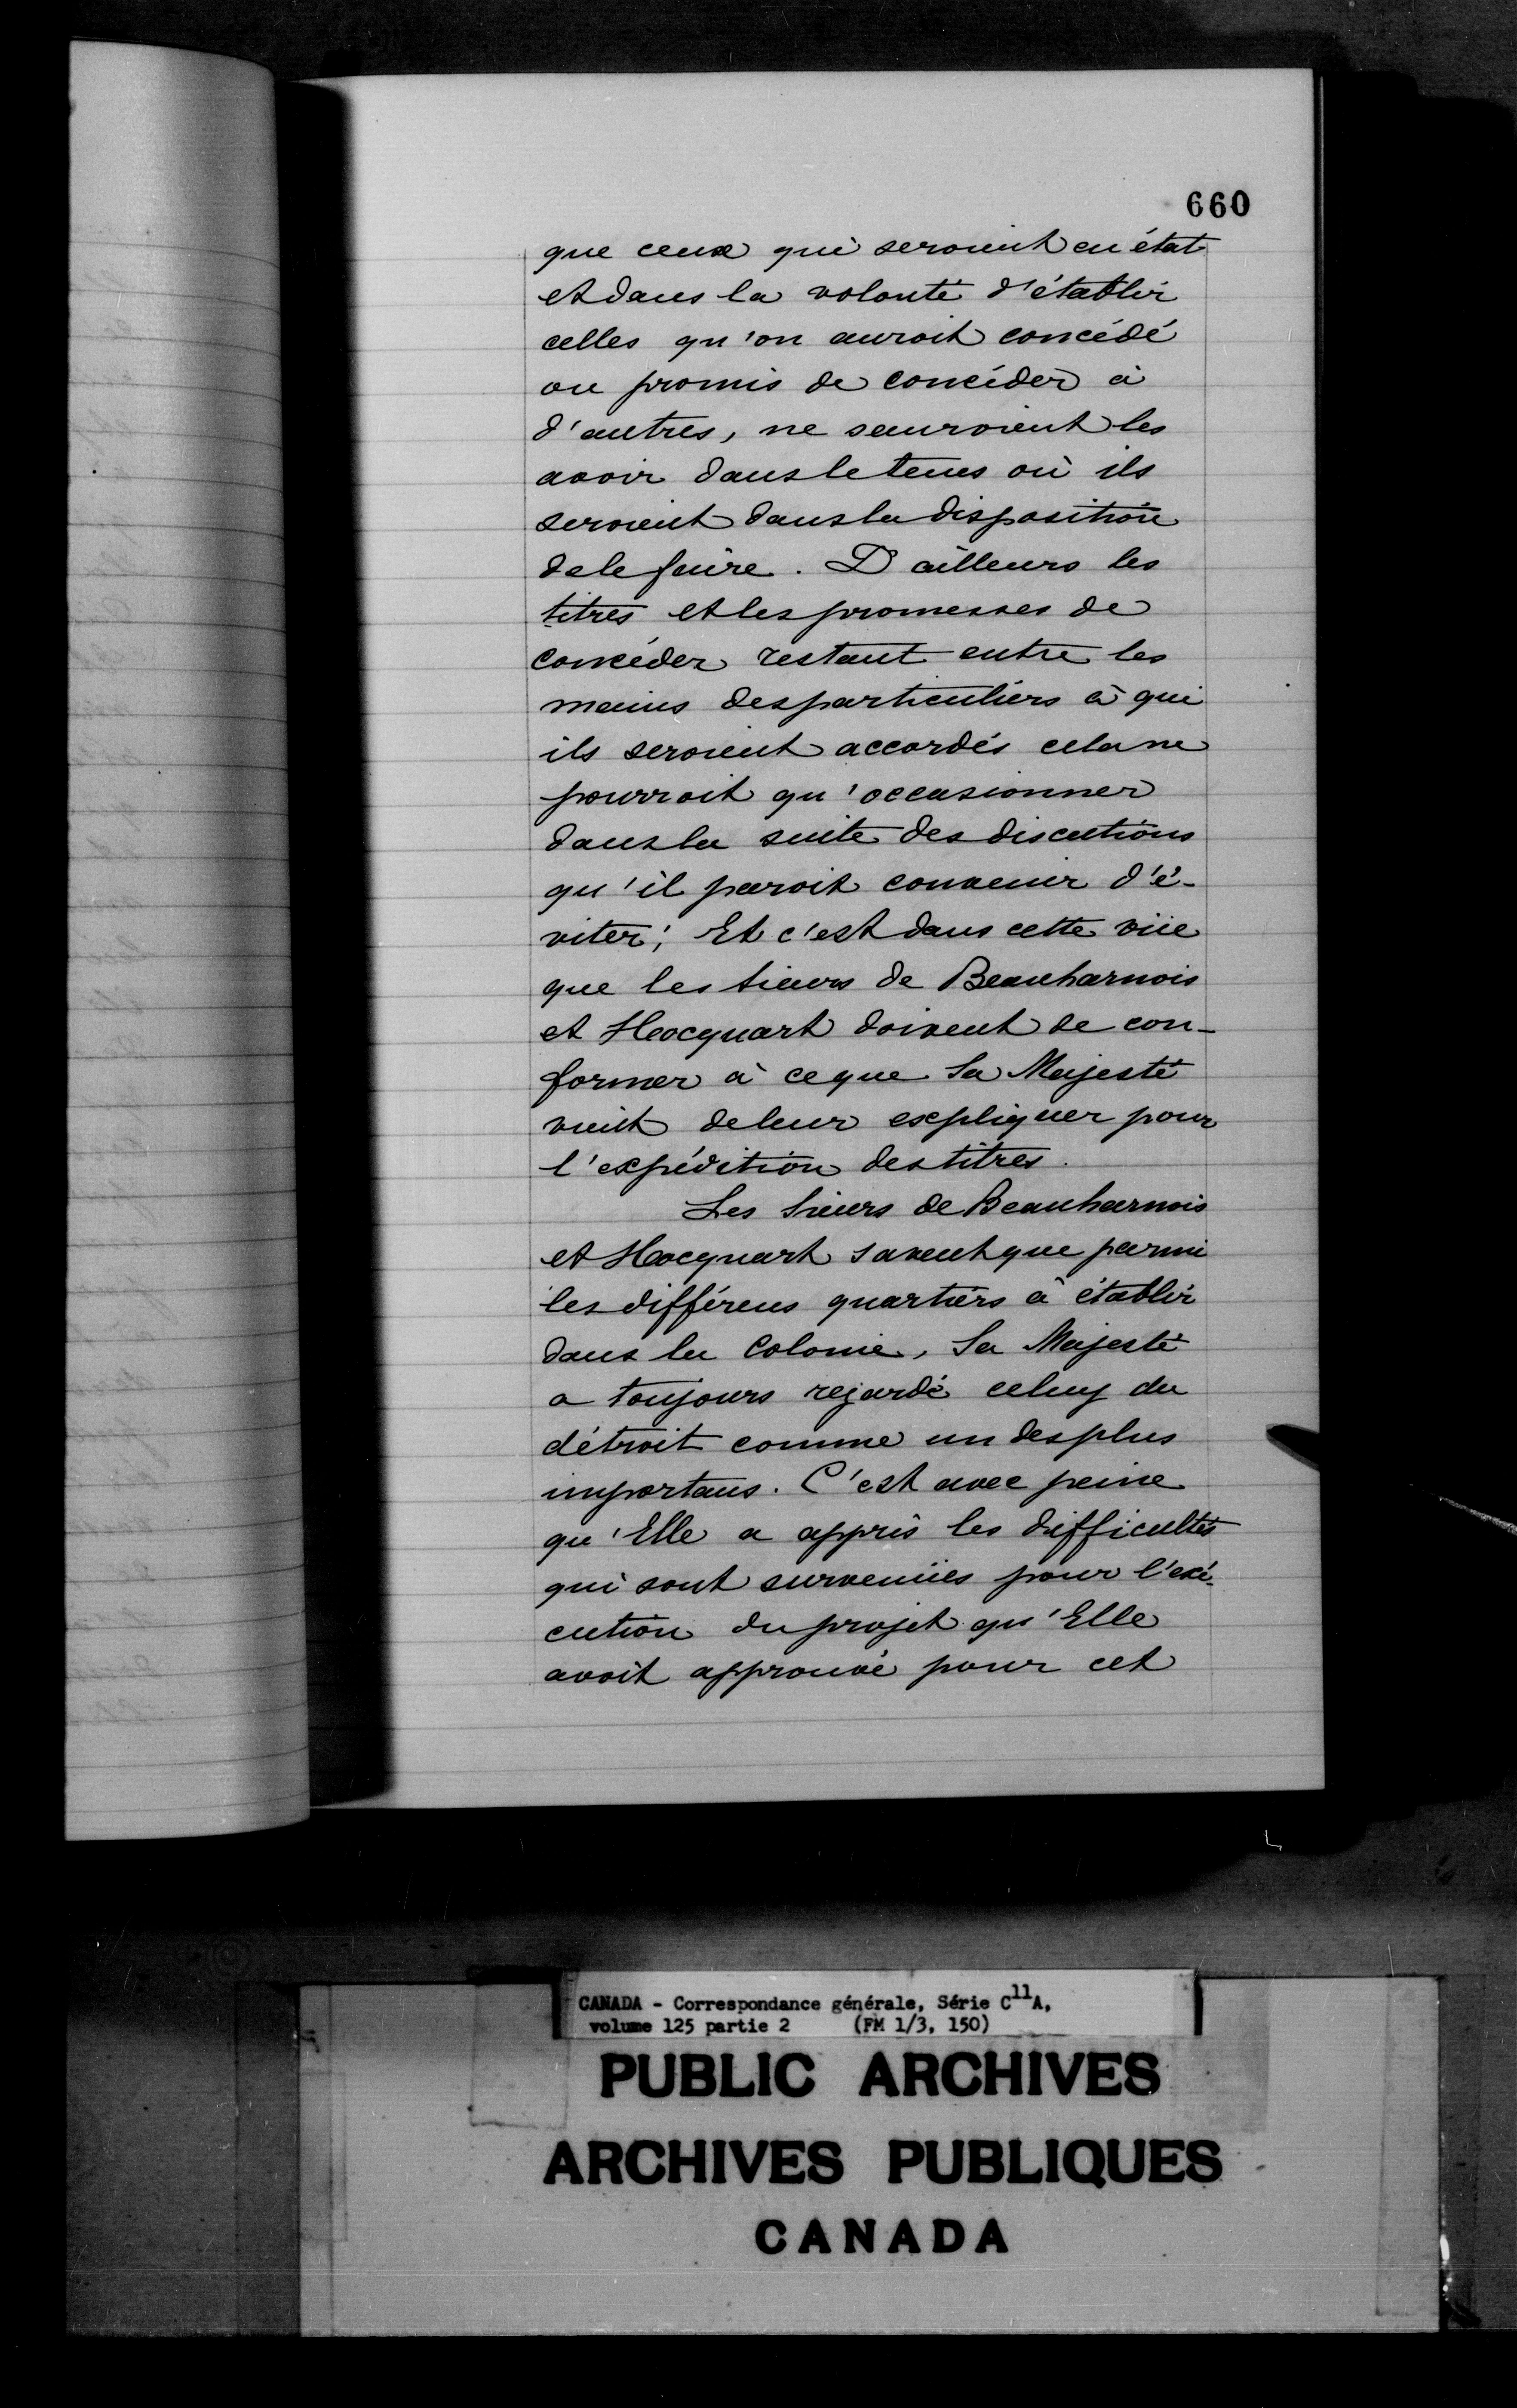 660
que ceux qui seroient en état
et dans la volonté d'établir
celles qu'on auroit concédé
ou promis de concéder à
d'autres, ne sauroient les
avoir dans le tems où ils
seroient dans la disposition
de le faire. D'ailleurs les
titres et les promesses de
concéder restant entre les
mains des particuliers à qui
ils seroient accordés cela ne
pourroit qu'occasionner
dans la suite des discutions
qu'il paroit convenir d'é-
viter; Et c'est dans cette vüe
que les sieurs de Beauharnois
et Hocquart doivent se con-
former à ce que Sa Majesté
vient de leur expliquer pour
l'expédition des titres.
Les Sieurs de Beauharnois
et Hocquart savent que parmi
les différens quartiers à établir
dans la Colonie, Sa Majesté
a toujours regardé celuy du
détroit comme un des plus
importans. C'est avec peine
qu'Elle a appris les difficultés
qui sont survenües pour l'exé-
cution du projet qu'Elle
avoit approuvé pour cet
CANADA - Correspondance générale, Série C11A,
volume 125 partie 2 (FM 1/3, 150)
PUBLIC ARCHIVES
ARCHIVES PUBLIQUES
CANADA